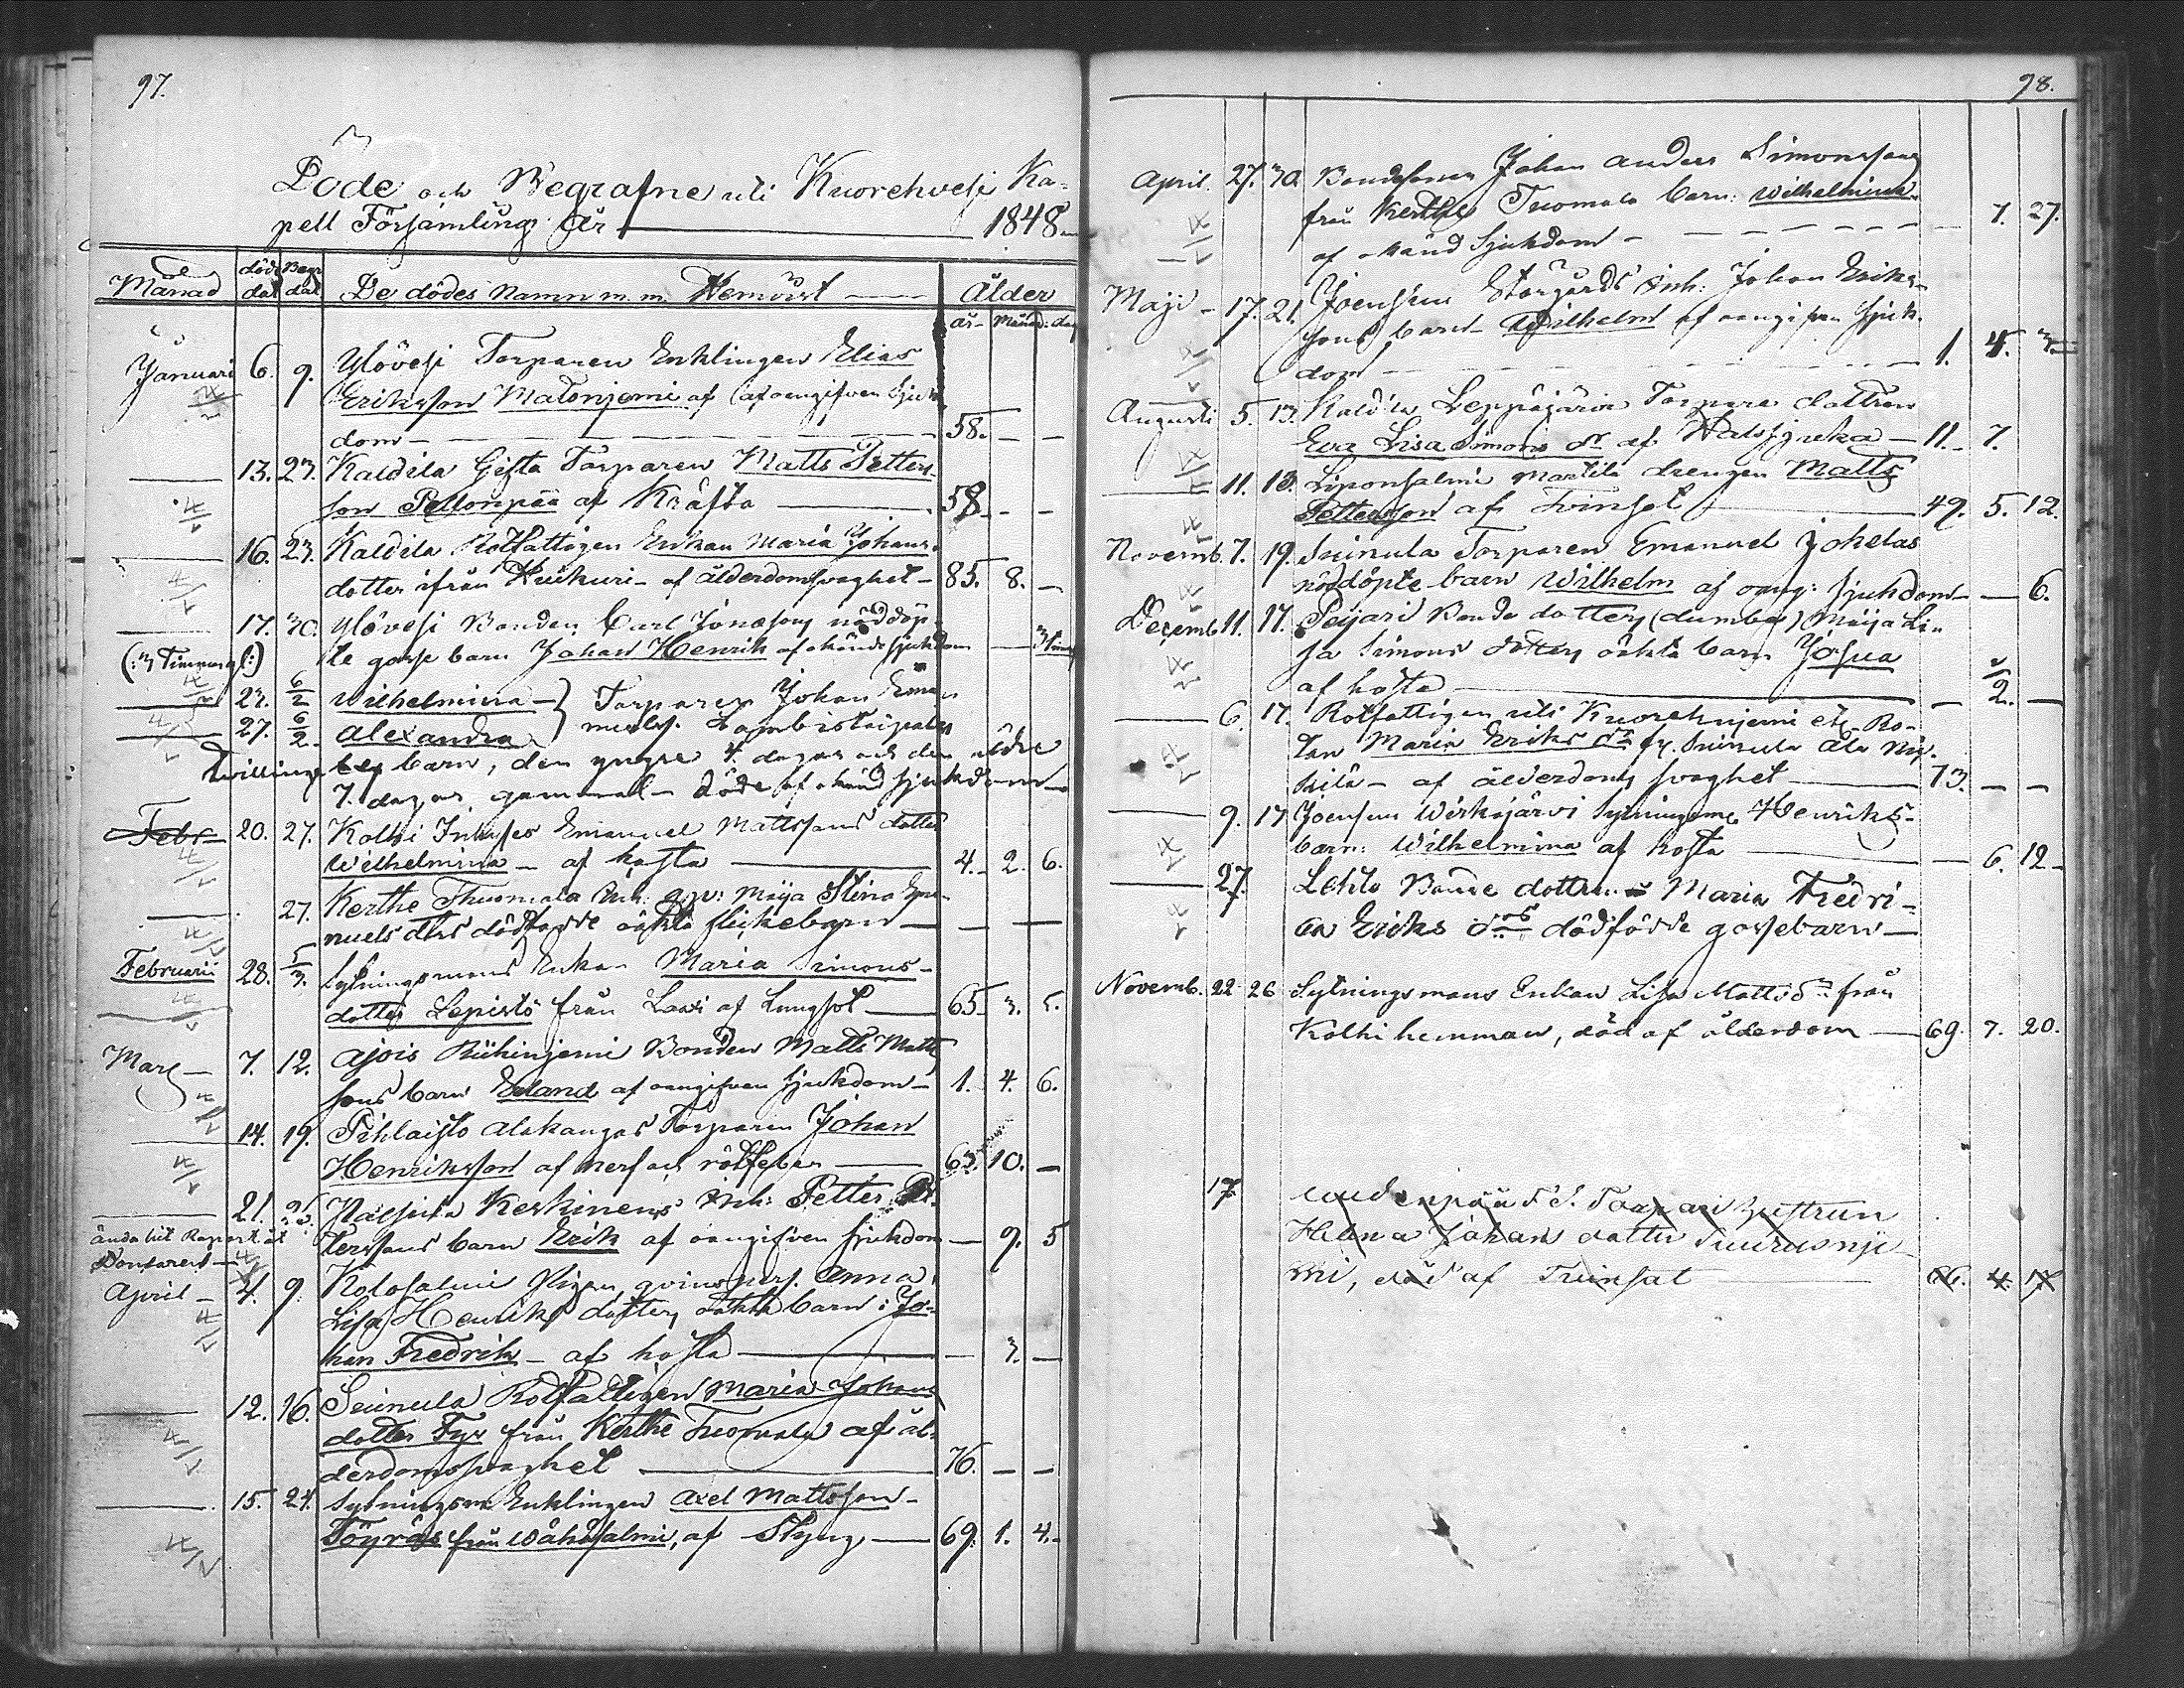 97.
Döde och Begrafne uti Kuorehvesi Ka=
pell Församling År 1848
Månad döde dat Begr dat De dödes Namn m. m. Hemvist Ålder
år Månad: dag
Januari 6. 9. Ylövesi Torparen Enklingen Elias
Eriksson Matonjemi af oangifven Sjuk
dom 58. — —
13. 23. Kaldila Gifta Torparen Matts Petters
son Peltonpää af Kräfta 58. — —
16. 23. Kaldila Rotfattigen Enkan Maria Johans
dotter ifrån af ålderdomsvaghet 85. 8. —
17. 30. Ylövesi Bonden Carl Jonasons nöddöp
te gosse barn Johan Henrik af okänd sjukdom — 3 tim
(: 3 Timmar :)
23. 6/2 Wilhelmina } Torparen Johan Eman
27. 6/2 Alexandra } uels.
Twillinge barn, den yngre 4. dagar och den äldre
7. dagar gammal döde af okänd sjukdom
Febr 20. 27. Kolhi Inhyses Emanuel Mattssons dotter
Wilhelmina af hosta 4. 2. 6.
27. Kerthe Thuomala Inh: qv: Maja Stina Ema
nuels dtrs dödfödde oäkta flickebarn — —
Februarii 28. 5/3. Sytningsmans Enkan Maria Simons
dotter Lepistö från Laxi af Lungsot 65. 3. 5.
Mars 7. 12. Ajois Riihinjemi Bonden Matts Matts
sons barn Erland af oangifven sjukdom 1. 4. 6.
14. 19. Pihlaisto Alakangas Torparen Johan
Henriksson af nerf och rötfeber 63. 10. —
21. 26. Keskinens Inh: Petter Pet
terssons barn Erik af oangifven sjukdom — 9. 5
ända hit Raport åt
Contoret
April 4. 9. Kolosalmi qvinspers. Anna
Lisa Henriks dotters oäkta barn: Jo=
han Fredrik af hosta — 3. —
12. 16. Suinula Rotfattigen Maria Johans
dotter Fyr från Kerthe Tuomala af ål=
derdomsvaghet 76. — —
15. 24. Sytningsm Enklingen Axel Mattsson
Töyräs från Wåhåsalmi, af Styng 69. 1. 4.
98.
April. 27. 30. Bondesonen Johan Anders Simonssons
från Kerthe Tuomala barn: Wilhelmina
af okänd Sjukdom — 7. 27.
Maji 17. 21. Joensuu Storgårds Inh: Johan Eriks=
sons barn Wilhelm af oangifven sjuk=
dom 1. 4. 3.
Augusti 5. 13. Kaldila Leppäjärvi Torpare dottren
Eva Lisa Simons dr af Halssjuka 11. 7.
11. 13. Liponsalmi Martila drengen Matts
Pettersson af Tvinsot 49. 5. 12.
Novemb. 7. 19. Suinula Torparen Emanuel Johelas
nöddöpte barn Wilhelm af oang: sjukdom — 6.
Decemb 11. 17. Peijari Bonde dotters (dumbes) Maja Li=
sa Simons dotters oäkta barn Josua
af hosta — 2. —
6. 17. Rotfattigen uti Kuorehnjemi Ro=
tan Maria Eriks dr fr. Suinula Ala
silä af ålderdoms svaghet 73. — —
9. 17. Joensuu Wirkajärvi Sytningsm: Henriks
barn: Wilhelmina af hosta — 6. 12
27. Lehto Bonde dottren Maria Fredri=
ca Eriks drs dödfödde gossebarn
Novemb. 22 26 Sytningsmans Enkan Lisa Mattsdr från
Kolhi hemman, död af ålderdom 69. 7. 20.
17. Torpari hustrun
Helena Johans dotter
mi, död af Tvinsot 66. 4. 17